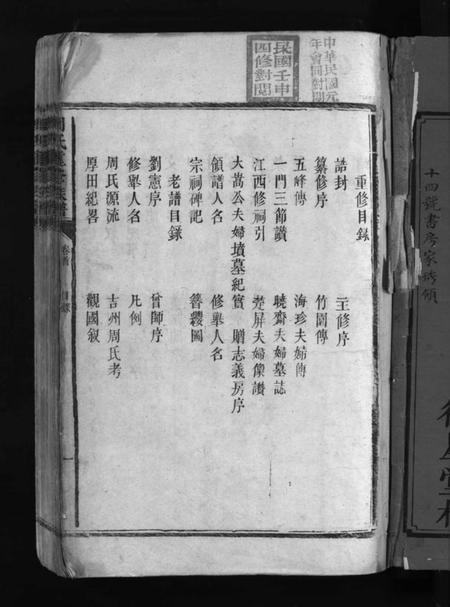 中華民國元
年會同對閱
民國壬申
四修對閱
重修目錄
誥封 主修序
纂修序 竹園傳
五峰傳 海珍夫婦傳
一門三節讚 曉齋夫婦墓誌
江西修祠引 屏夫婦像讚
大嵩公夫婦墳墓紀實 贈志義房序
領譜人名 修舉人名
宗祠碑記 簪纓圖
老譜目錄
劉憲序 曾師序
修舉人名 凡例
周氏源流 吉州周氏考
厚田紀畧 觀國叙
卷首 目錄 一
十四號書房家琇領